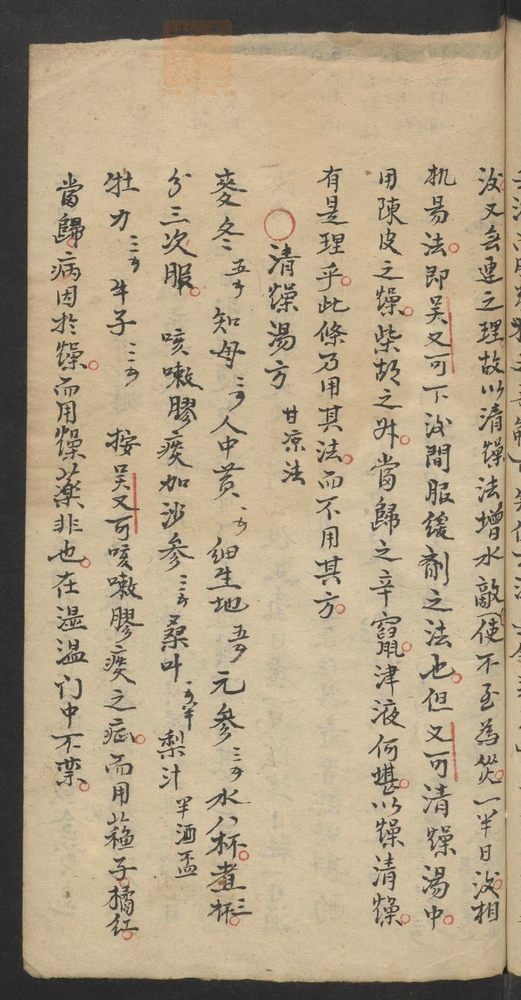 汝又会連之理故以清燥法增水敵使不至為災一半日後相
机易法即吴又可下後間服緩劑之法也但又可清燥湯中
用陳皮之燥柴胡之升當歸之辛竄津液何堪以燥清燥
有是理乎此條乃用其法而不用其方
○清燥湯方 甘凉法
麥冬五勺知母二勺人中黄一勺細生地五勺元参三勺水八杯煮三杯
分三次服 咳嗽膠痰加沙参三勺桑叶一勺半梨汁半酒盃
牡力三勺牛子三勺 按吴又可咳嗽膠痰之症而用蘓子橘红
當歸病因於燥而用燥藥非也在湿温门中不禁